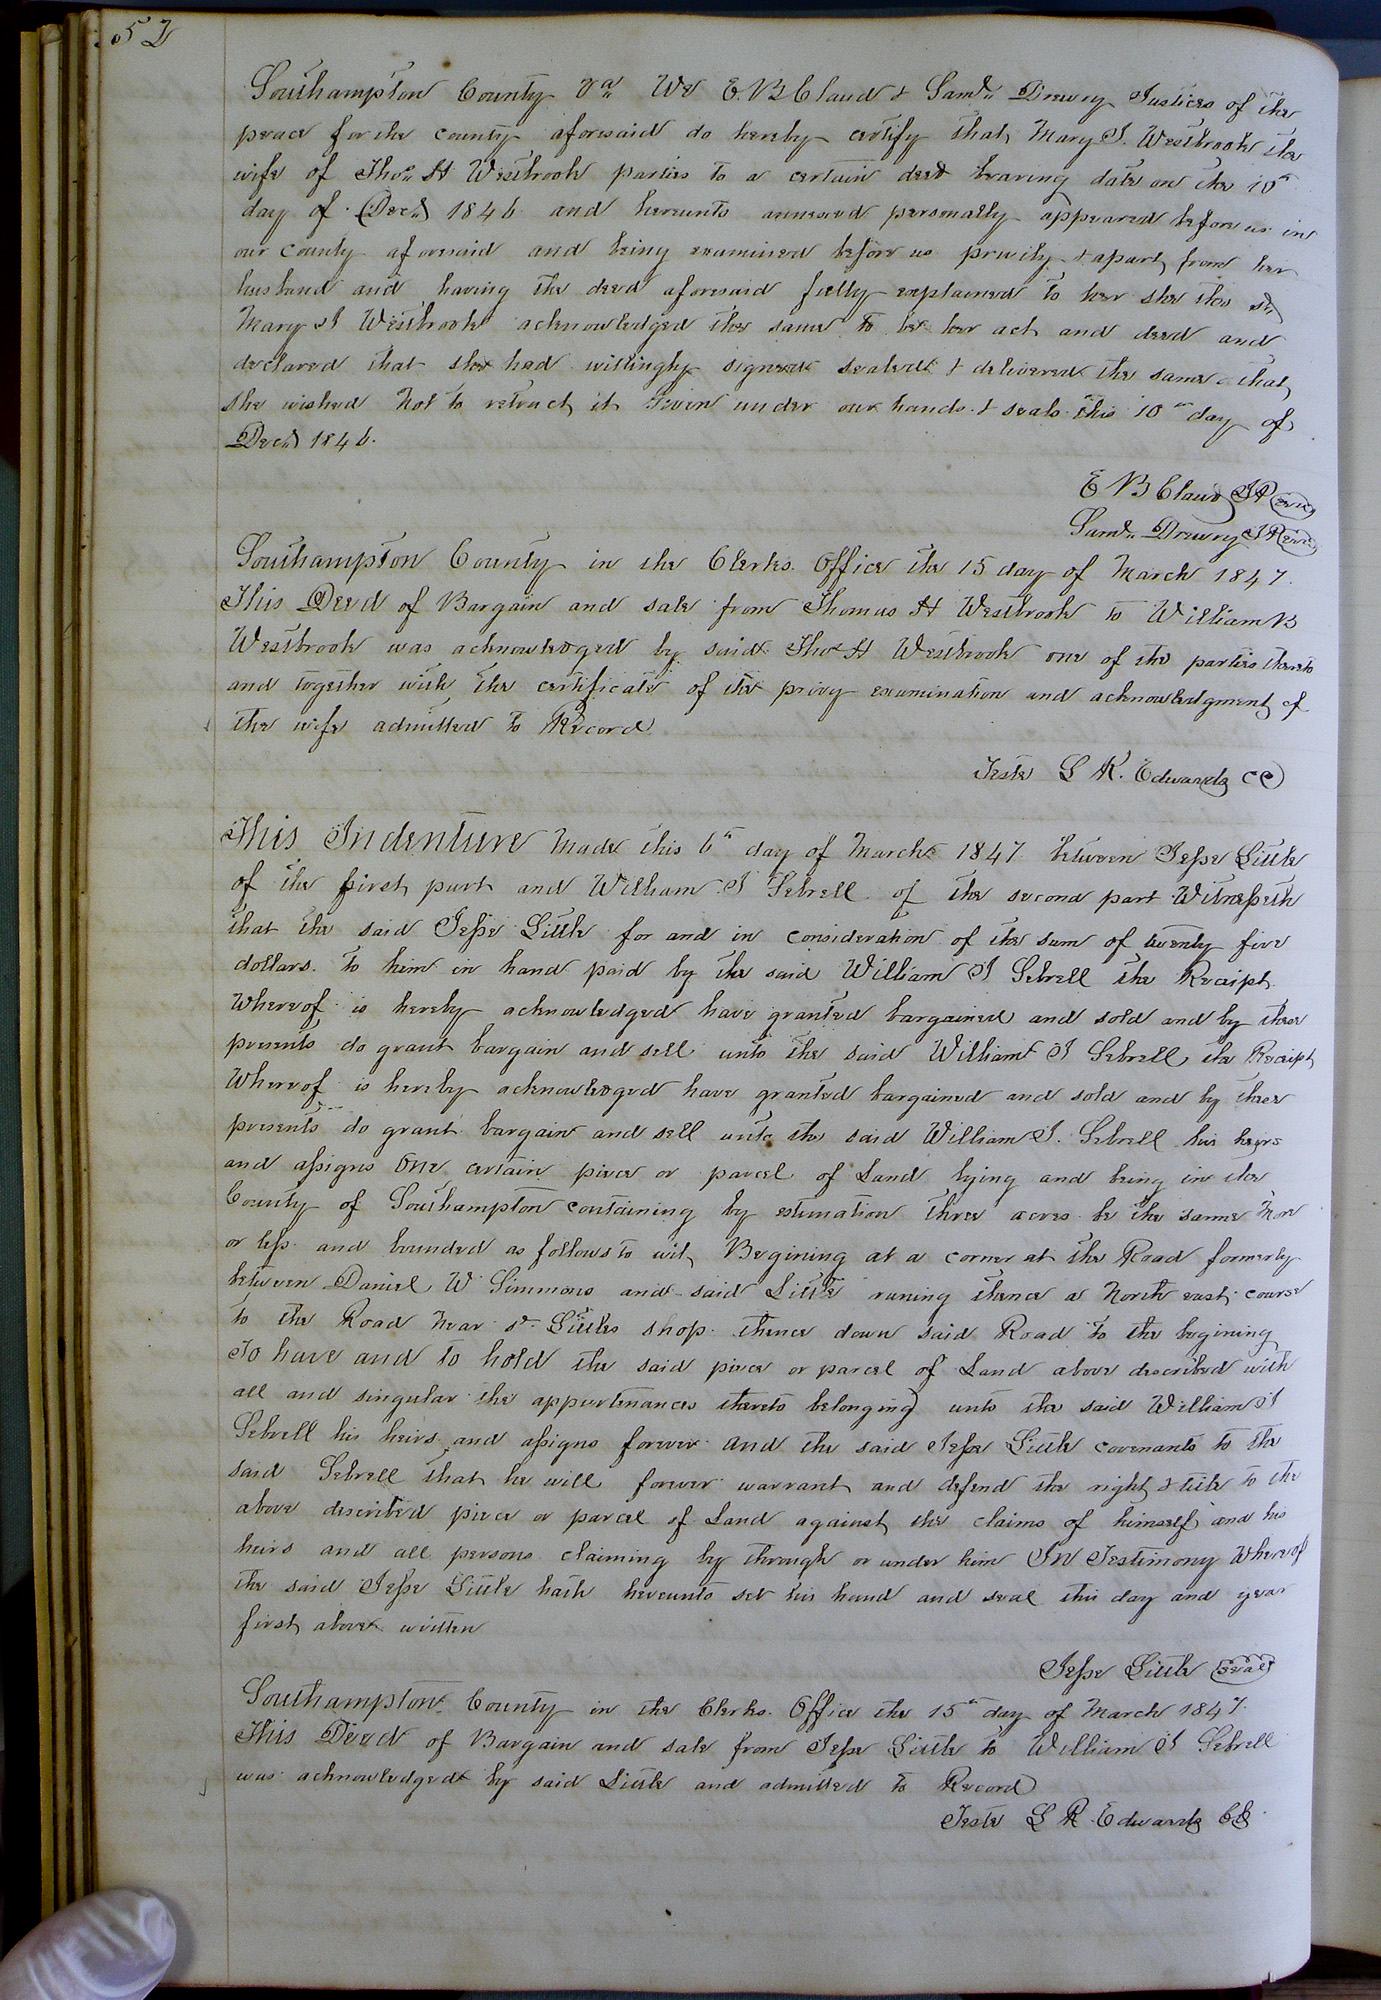 52
Southampton County Va. We E. B Claud & Saml. Drewry Justices of the
peace for the county aforesaid do hereby certify that Mary J. Westbrook the
wife of Thos. H Westbrook parties to a certain deed bearing date on the 10th
day of Decr. 1846 and hereunto annexed personally appeared before us in
our county aforesaid and being examined before us privily & apart from her
husband and having the deed aforesaid fully explained to her she the sd.
Mary J Westbrook acknowledged the same to be her act and deed and
declared that she had willingly signed sealed & delivered the same & that
she wished not to retract it Given under our hands & seals this 10th day of
Decr. 1846.
E B Claud JP Seal
Saml. Drewry JP Seal
Southampton County in the Clerks Office the 15 day of March 1847.
This Deed of Bargain and sale from Thomas H Westbrook to William B
Westbrook was acknowledged by said Thos H Westbrook one of the parties thereto
and together with the certificate of the privy examination and acknowledgment of
the wife admitted to Record
Teste L R. Edwards CC
This Indenture Made this 6th day of March 1847 between Jesse Little
of the first part and William J Sebrell of the second part Witnesseth
that the said Jesse Little for and in consideration of the sum of twenty five
dollars. to him in hand paid by the said William J Sebrell the Receipt
Whereof is hereby acknowledged have granted bargained and sold and by these
presents do grant bargain and sell unto the said William J Sebrell the Receipt
Whereof is hereby acknowledged have granted bargained and sold and by these
presents do grant bargain and sell unto the said William J. Sebrell his heirs
and assigns One certain piece or parcel of Land lying and being in the
County of Southampton containing by estimation three acres be the same More
or less and bounded as follows to wit, Begining at a corner at the Road formerly
between Daniel W Simmons and said Little runing thence a North east course
to the Road Near sd Littles shop thence down said Road to the begining
To have and to hold the said piece or parcel of Land above described with
all and singular the appurtenances thereto belonging) unto the said William J
Sebrell his heirs and assigns forever and the said Jesse Little covenants to the
said Sebrell that he will forever warrant and defend the right & title to the
above described piece or parcel of Land against the claims of himself and his
heirs and all persons claiming by through or under him In Testimony Whereof
the said Jesse Little hath hereunto set his hand and seal this day and year
first above written
Jesse Little Seal
Southampton County in the Clerks Office the 15th day of March 1847.
This Deed of Bargain and sale from Jesse Little to William J Sebrell
was acknowledged by said Little and admitted to Record
Teste L R Edwards CC